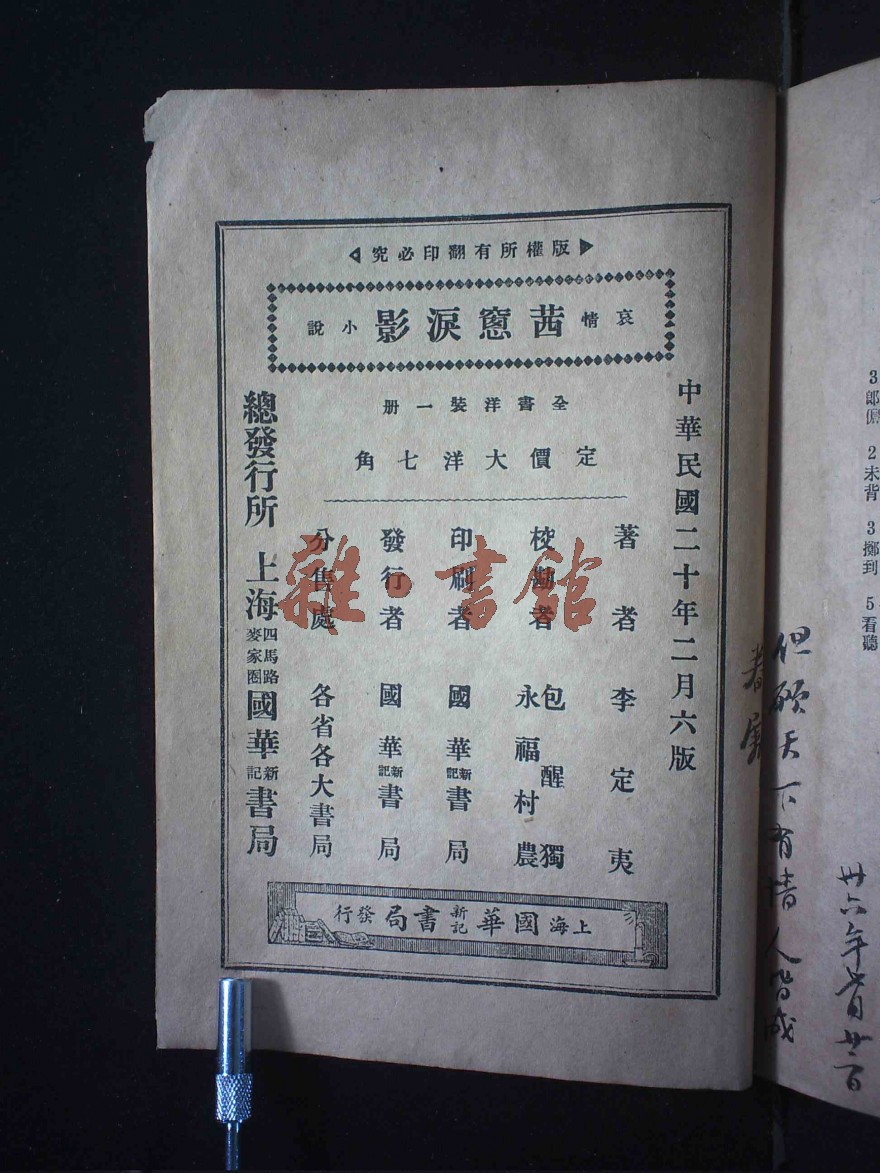 版權所有翻印必究
哀情 茜窻淚影 小說
全書洋裝一册
定價大洋七角
中華民國二十年二月六版
著者 李定夷
校勘者 包醒獨 永福村農
印刷者 國華新記書局
發行者 國華新記書局
分售處 各省各大書局
總發行所 上海四馬路麥家圈 國華新記書局
上海國華新記書局發行
雜·書館
3 郎
2 未背
3 擲到
5 看聽
但願天下有情人皆成
眷屬